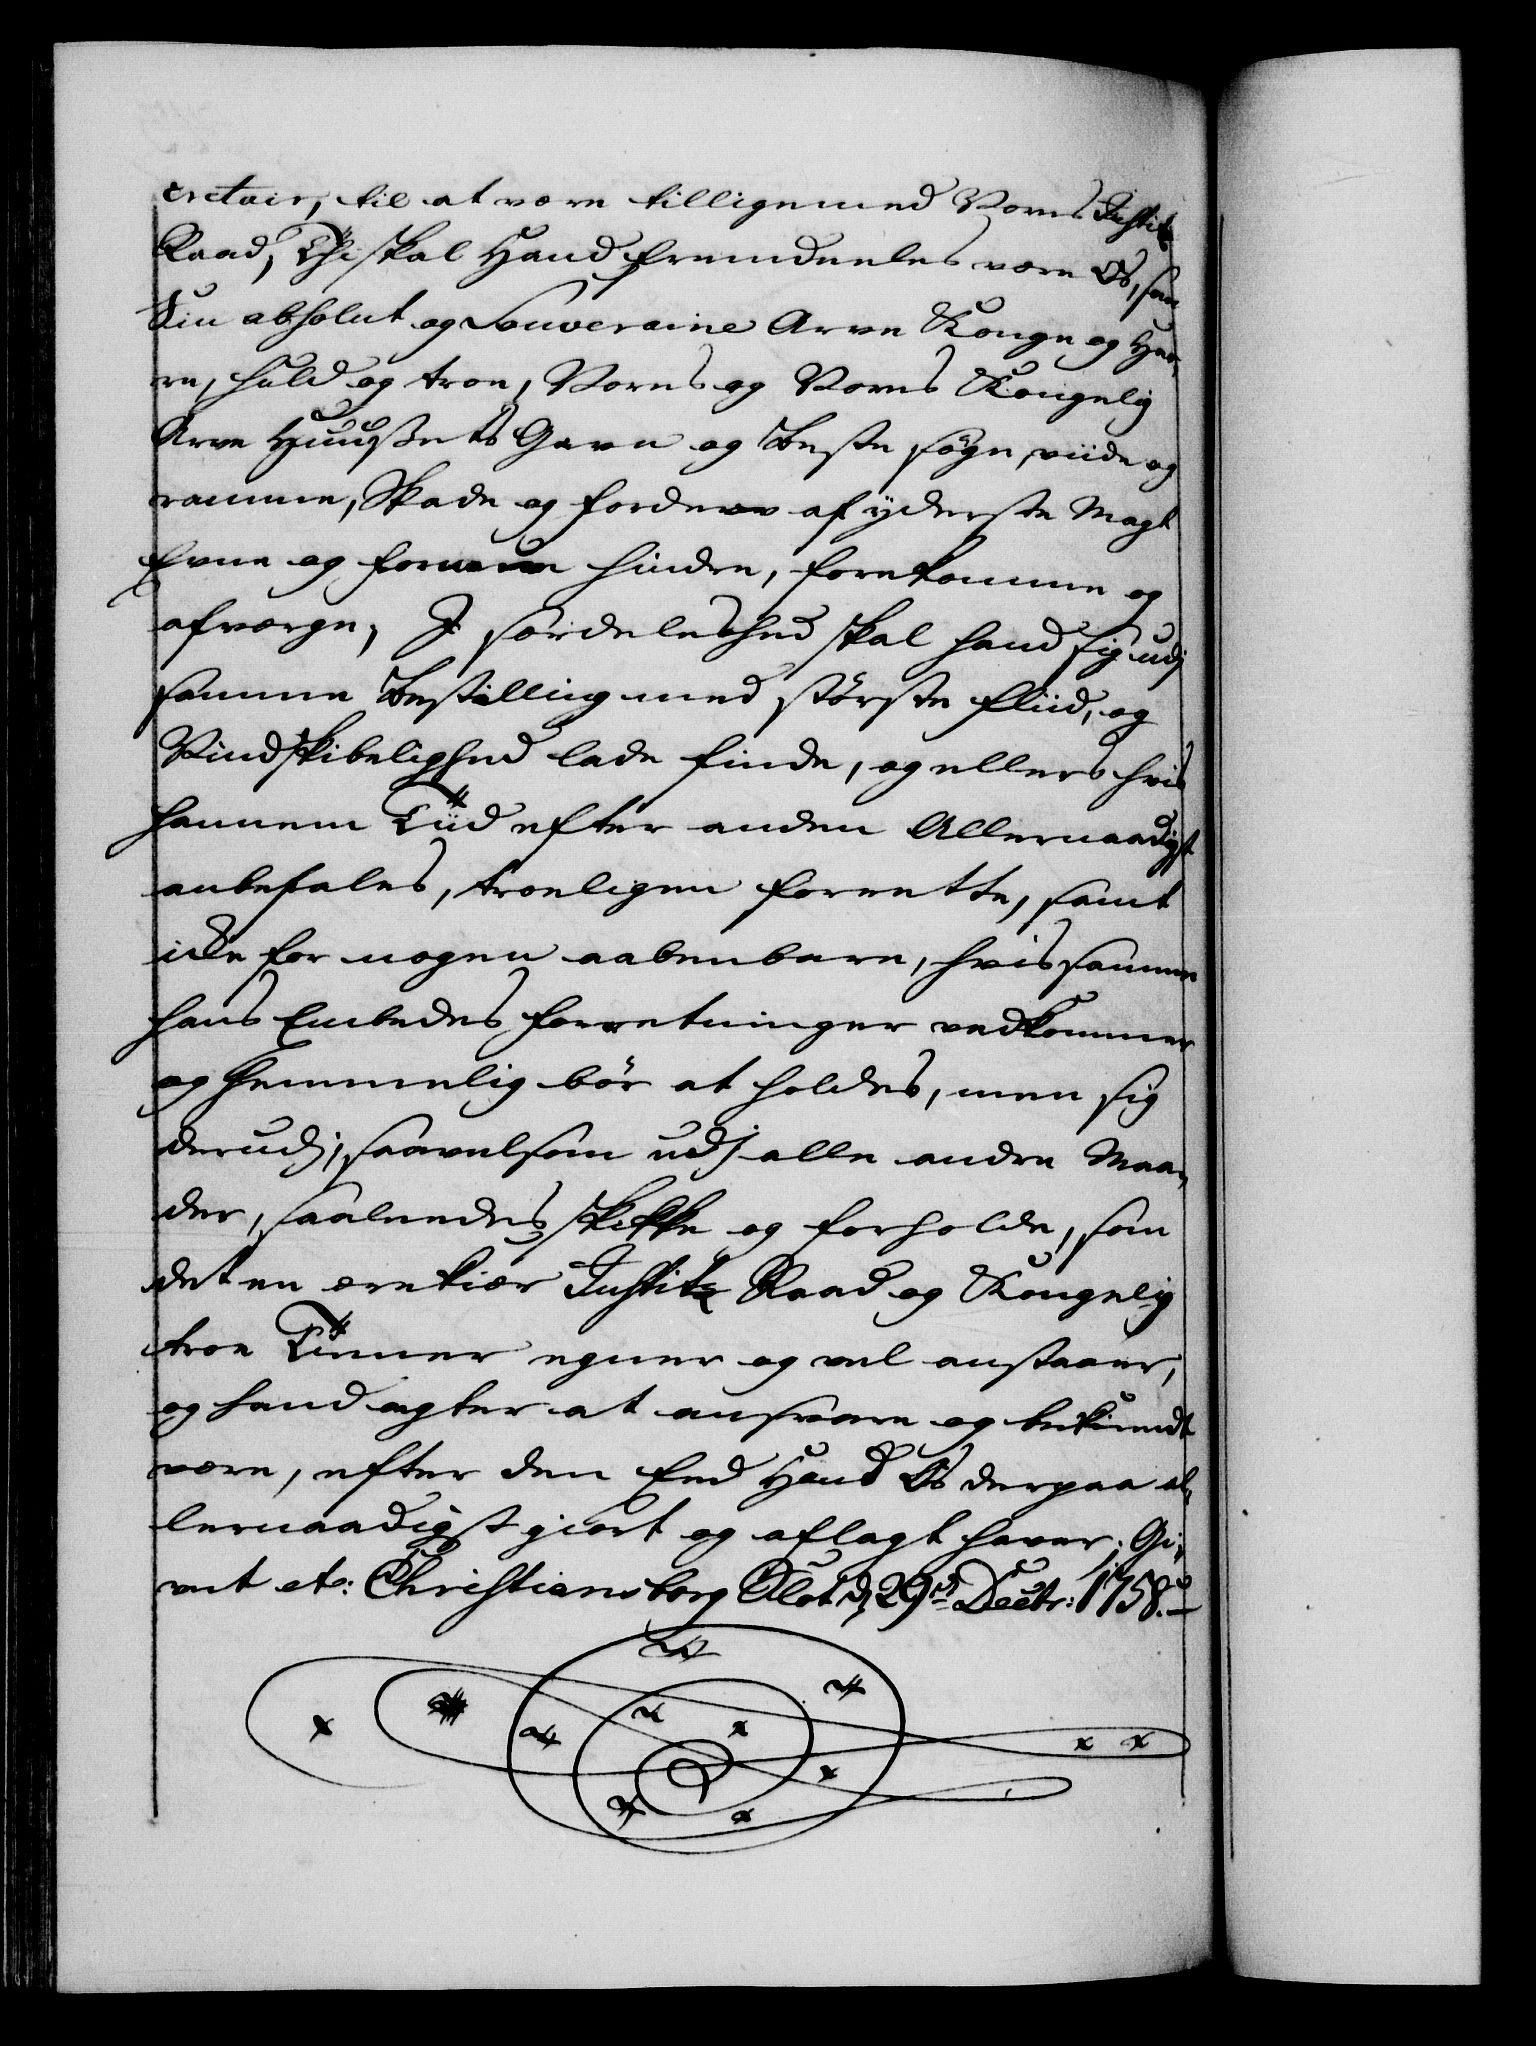 cretair, til at være tilligemed Vores Justitz
Raad, Thi skal Hand fremdeeles være Os, som
Sin absolut og Souveraine Arve Konge og Her,
re, huld og troe, Vores og Vores Kongelig
Arve Huusets Gavn og beste søge, viide og
ramme, Skade og forderv af yderste Magt
Evne og formue hindre, forekomme og
afværge, I særdeleshed skal hand sig udj
samme bestilling med største fliid, og
Vindskibelighed lade finde, og ellers hvis
hannem Tiid efter anden Allernaadigst
anbefales, troeligen forrette, samt
icke for nogen aabenbare, hvis samme
hans Embedes forretninger vedkommer
og hemmelig bør at holdes, men sig
derudj, saavelsom udj alle andre Maa,
der, saaleedes skikke og forholde, som
det en ærekiær Justitz Raad og Kongelig
troe Tienner egner og vel anstaaer,
og hand agter at ansvare og bekiendt
være, efter den Eed Hand Os derpaa al,
lernaadigst giort og aflagt haver; Gi,
vet etc: Christiansborg Slot d 29de Decbr: 1758.